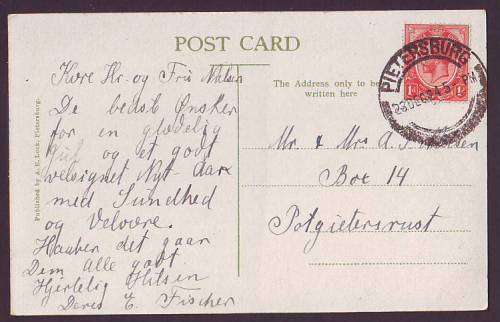 POST CARD
Kære Hr. og Fru
De bedste Ønsker
for en glædelig
Jul og et godt
velsignet Nyt Aar
med Sundhed
og Velvære.
Haaber det gaar
Dem alle godt
Hjertelig Hilsen
Deres E. Fischer
Published by A. E. Pietersburg.
The Address only to be
written here
PIETERSBURG
23 DEC 24 5 PM
Mr. & Mrs A.
Box 14
Potgietersrust